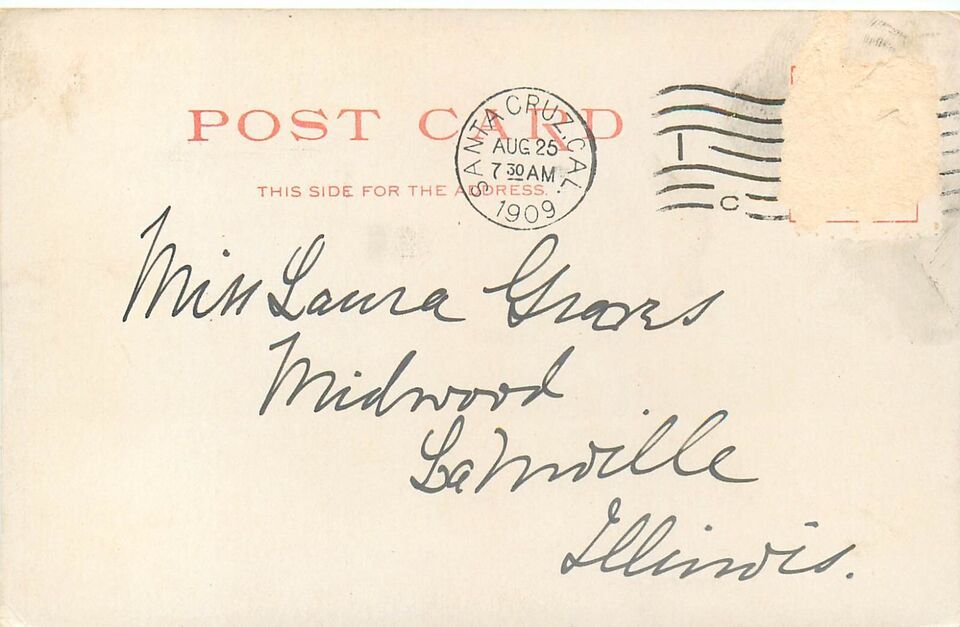 POST CARD
THIS SIDE FOR THE ADDRESS.
SANTA CRUZ, CAL.
AUG 25
7 30 AM
1909
C
Miss Laura Graves
Midwood
Illinois.